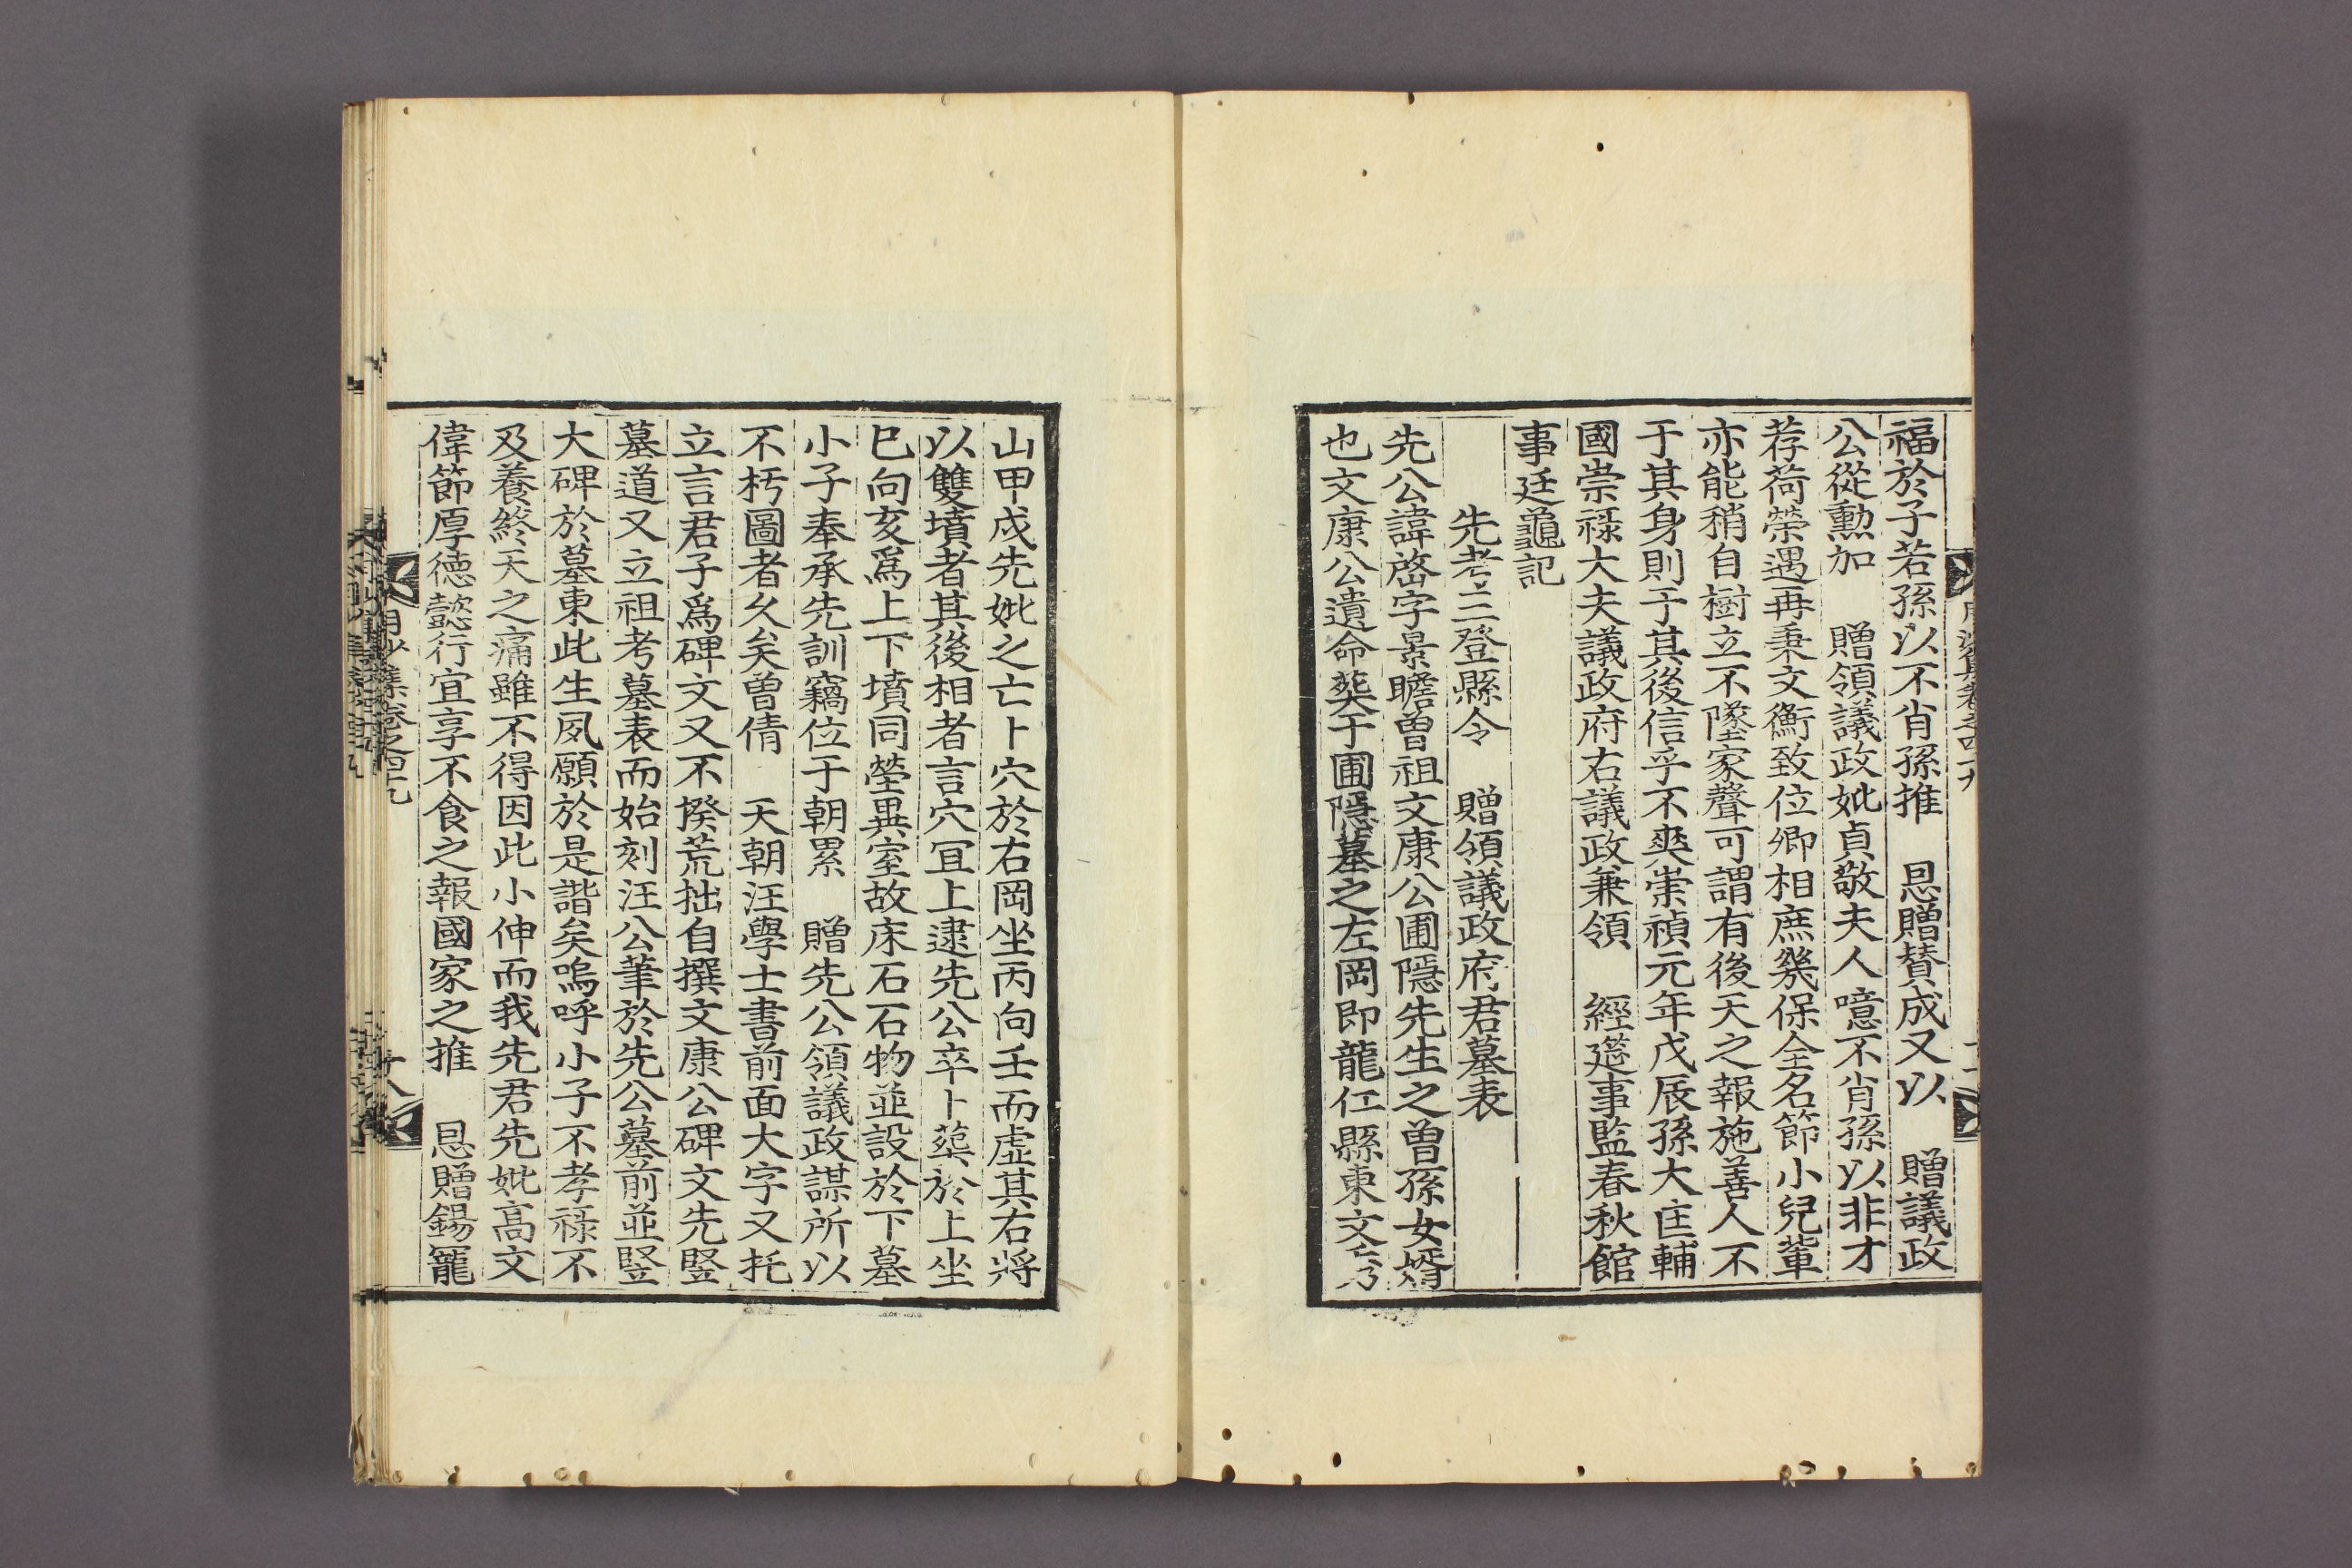 福於子若孫以不肖孫推　恩贈賛成又以　贈議政
公從勳加　贈領議政妣貞敬夫人噫不肖孫以非才
荐荷榮遇再秉文衡致位卿相庶幾保全名節小兒輩
亦能稍自樹立不墜家聲可謂有後天之報施善人不
于其身則于其後信乎不爽崇禎元年戊辰孫大匡輔
國崇祿大夫議政府右議政兼領　經筵事監春秋館
事廷龜記
先考三登縣令　贈領議政府君墓表
先公諱啓字景瞻曾祖文康公圃隱先生之曾孫女壻
也文康公遺命葬于圃隱墓之左岡即龍仁縣東文秀
山甲戌先妣之亡卜穴於右岡坐丙向壬而虛其右將
以雙墳者其後相者言穴冝上逮先公卒卜葬於上坐
巳向亥爲上下墳同塋異室故床石石物並設於下墓
小子奉承先訓竊位于朝累　贈先公領議政謀所以
不朽圖者久矣曾倩　天朝汪學士書前面大字又托
立言君子爲碑文又不揆荒拙自撰文康公碑文先竪
墓道又立祖考墓表而始刻汪公筆於先公墓前並竪
大碑於墓東此生夙願於是諧矣嗚呼小子不孝祿不
及養終天之痛雖不得因此小伸而我先君先妣高文
偉節厚德懿行宜享不食之報國家之推　恩贈錫寵
月沙集卷之四十九
十八